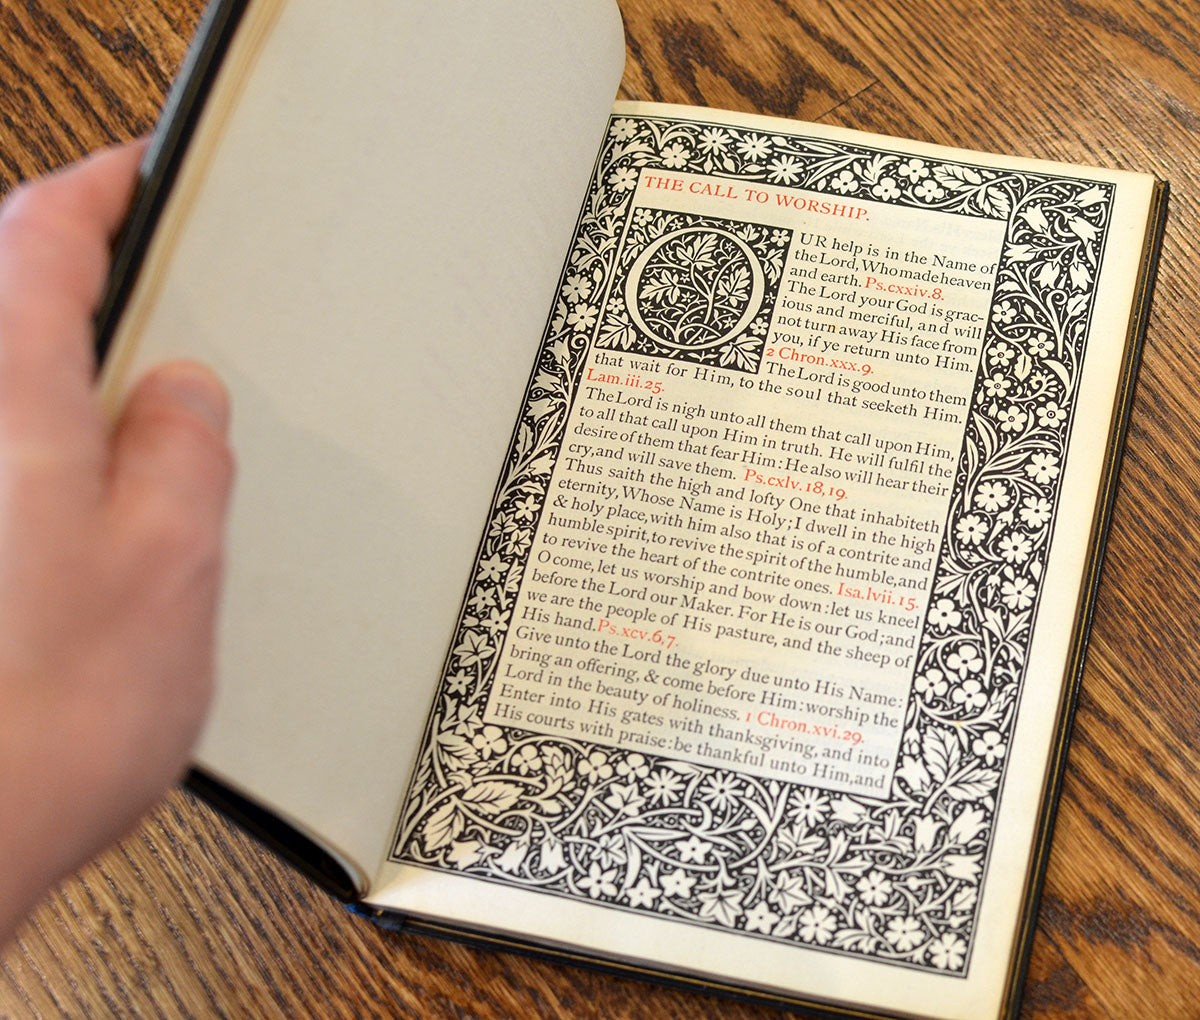 THE CALL TO WORSHIP.
OUR help is in the Name of
the Lord, Who made heaven
and earth. Ps.cxxiv.8.
The Lord your God is grac-
ious and merciful, and will
not turn away His face from
you, if ye return unto Him.
2 Chron.xxx.9.
The Lord is good unto them
that wait for Him, to the soul that seeketh Him.
Lam.iii.25.
The Lord is nigh unto all them that call upon Him,
to all that call upon Him in truth. He will fulfil the
desire of them that fear Him: He also will hear their
cry, and will save them. Ps.cxlv.18,19.
Thus saith the high and lofty One that inhabiteth
eternity, Whose Name is Holy; I dwell in the high
& holy place, with him also that is of a contrite and
humble spirit, to revive the spirit of the humble, and
to revive the heart of the contrite ones. Isa.lvii.15.
O come, let us worship and bow down: let us kneel
before the Lord our Maker. For He is our God; and
we are the people of His pasture, and the sheep of
His hand. Ps.xcv.6,7.
Give unto the Lord the glory due unto His Name:
bring an offering, & come before Him: worship the
Lord in the beauty of holiness. 1 Chron.xvi.29.
Enter into His gates with thanksgiving, and into
His courts with praise: be thankful unto Him, and